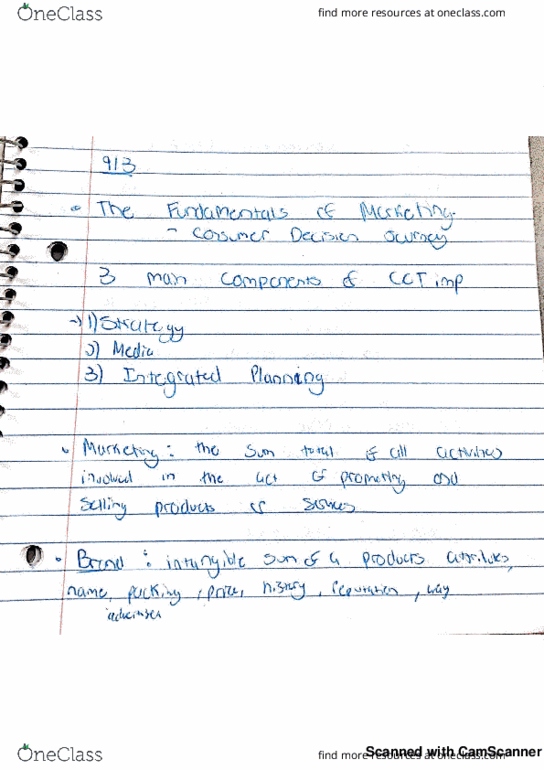 OneClass find more resources at oneclass.com
913
• The Fundamentals of Marketing.
- Consumer Decision Ourney
3 main components of CCT imp
→ 1) Strategy
2) Media
3) Integrated Planning
• Marketing: the sum total of all activities
involved in the act of promoting and
selling products or services
• Brand: intangible sum of a products attributes,
name, packing, price, history, reputation, way
advertises
OneClass find more resources at oneclass.com
Scanned with CamScanner